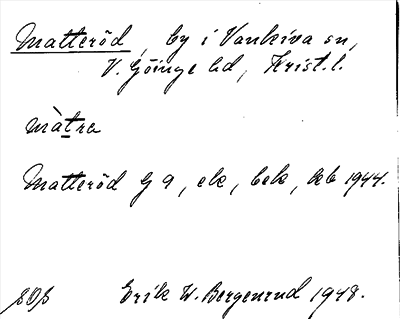 Matteröd, by i Vankiva sn,
V. Göinge hd, Krist. l.
màtra
Matteröd G 9, ek, bek, 1944.
Erik W. Bergenrud 1948.